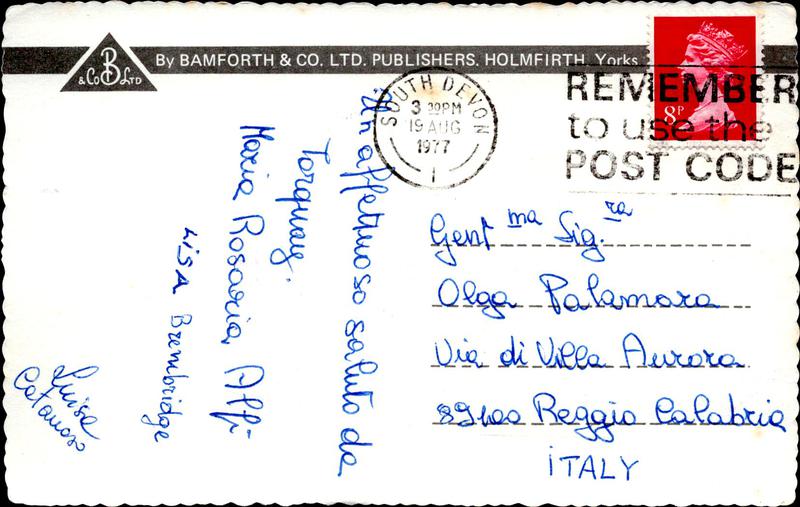 B
& Co LTD
By BAMFORTH & CO. LTD. PUBLISHERS, HOLMFIRTH, Yorks
SOUTH DEVON
3 30PM
19 AUG
1977
1
REMEMBER
to use the
POST CODE
8P
Un affettuoso saluto da
Torquay.
Maria Rosaria Alfi
LISA Brembridge
Luisa
Catanoso
Gent ma Sig. ra
Olga Palamara
Via di Villa Aurora
89100 Reggio Calabria
ITALY